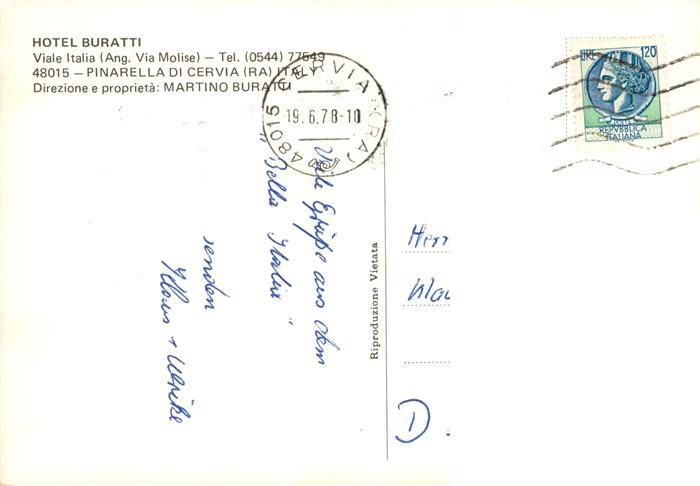 HOTEL BURATTI
Viale Italia (Ang. Via Molise) – Tel. (0544) 77549
48015 – PINARELLA DI CERVIA (RA) ITALY
Direzione e proprietà: MARTINO BURATTI
48015 CERVIA (RA)
19.6.78-10
LIRE 120
POSTE
REPVBBLICA
ITALIANA
Viele Grüße aus dem
"Bella Italia"
senden
Klaus + Ulrike
Riproduzione Vietata
Herr
D